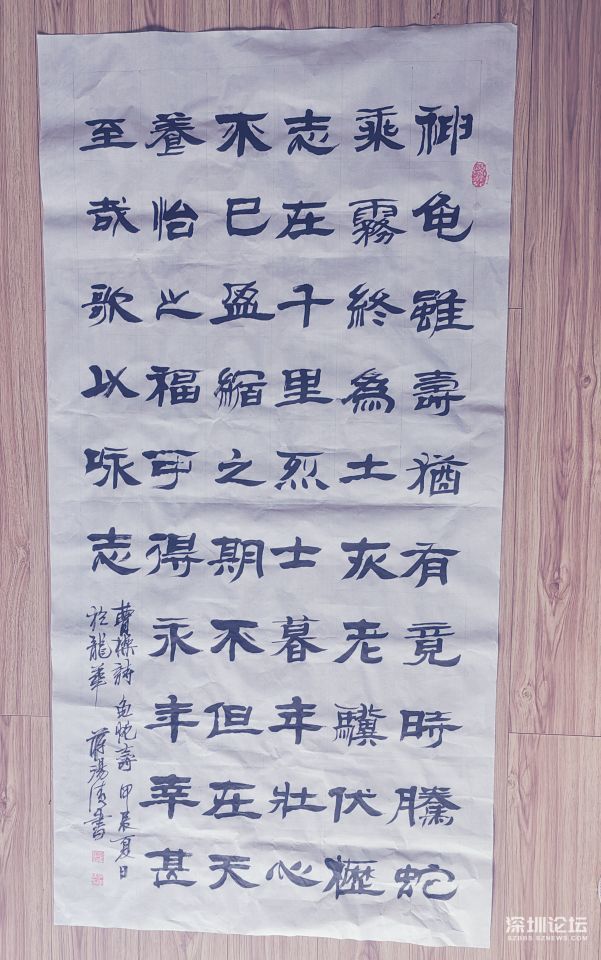 神龟雖壽猶有竟時騰蛇
乘霧終為土灰老驥伏櫪
志在千里烈士暮年壯心
不已盈縮之期不但在天
養怡之福可得永年幸甚
至哉歌以咏志
曹操詩 龟 壽 甲辰夏日
於龍華 蔣湯 書
深圳论坛
SZBBS.SZNEWS.COM